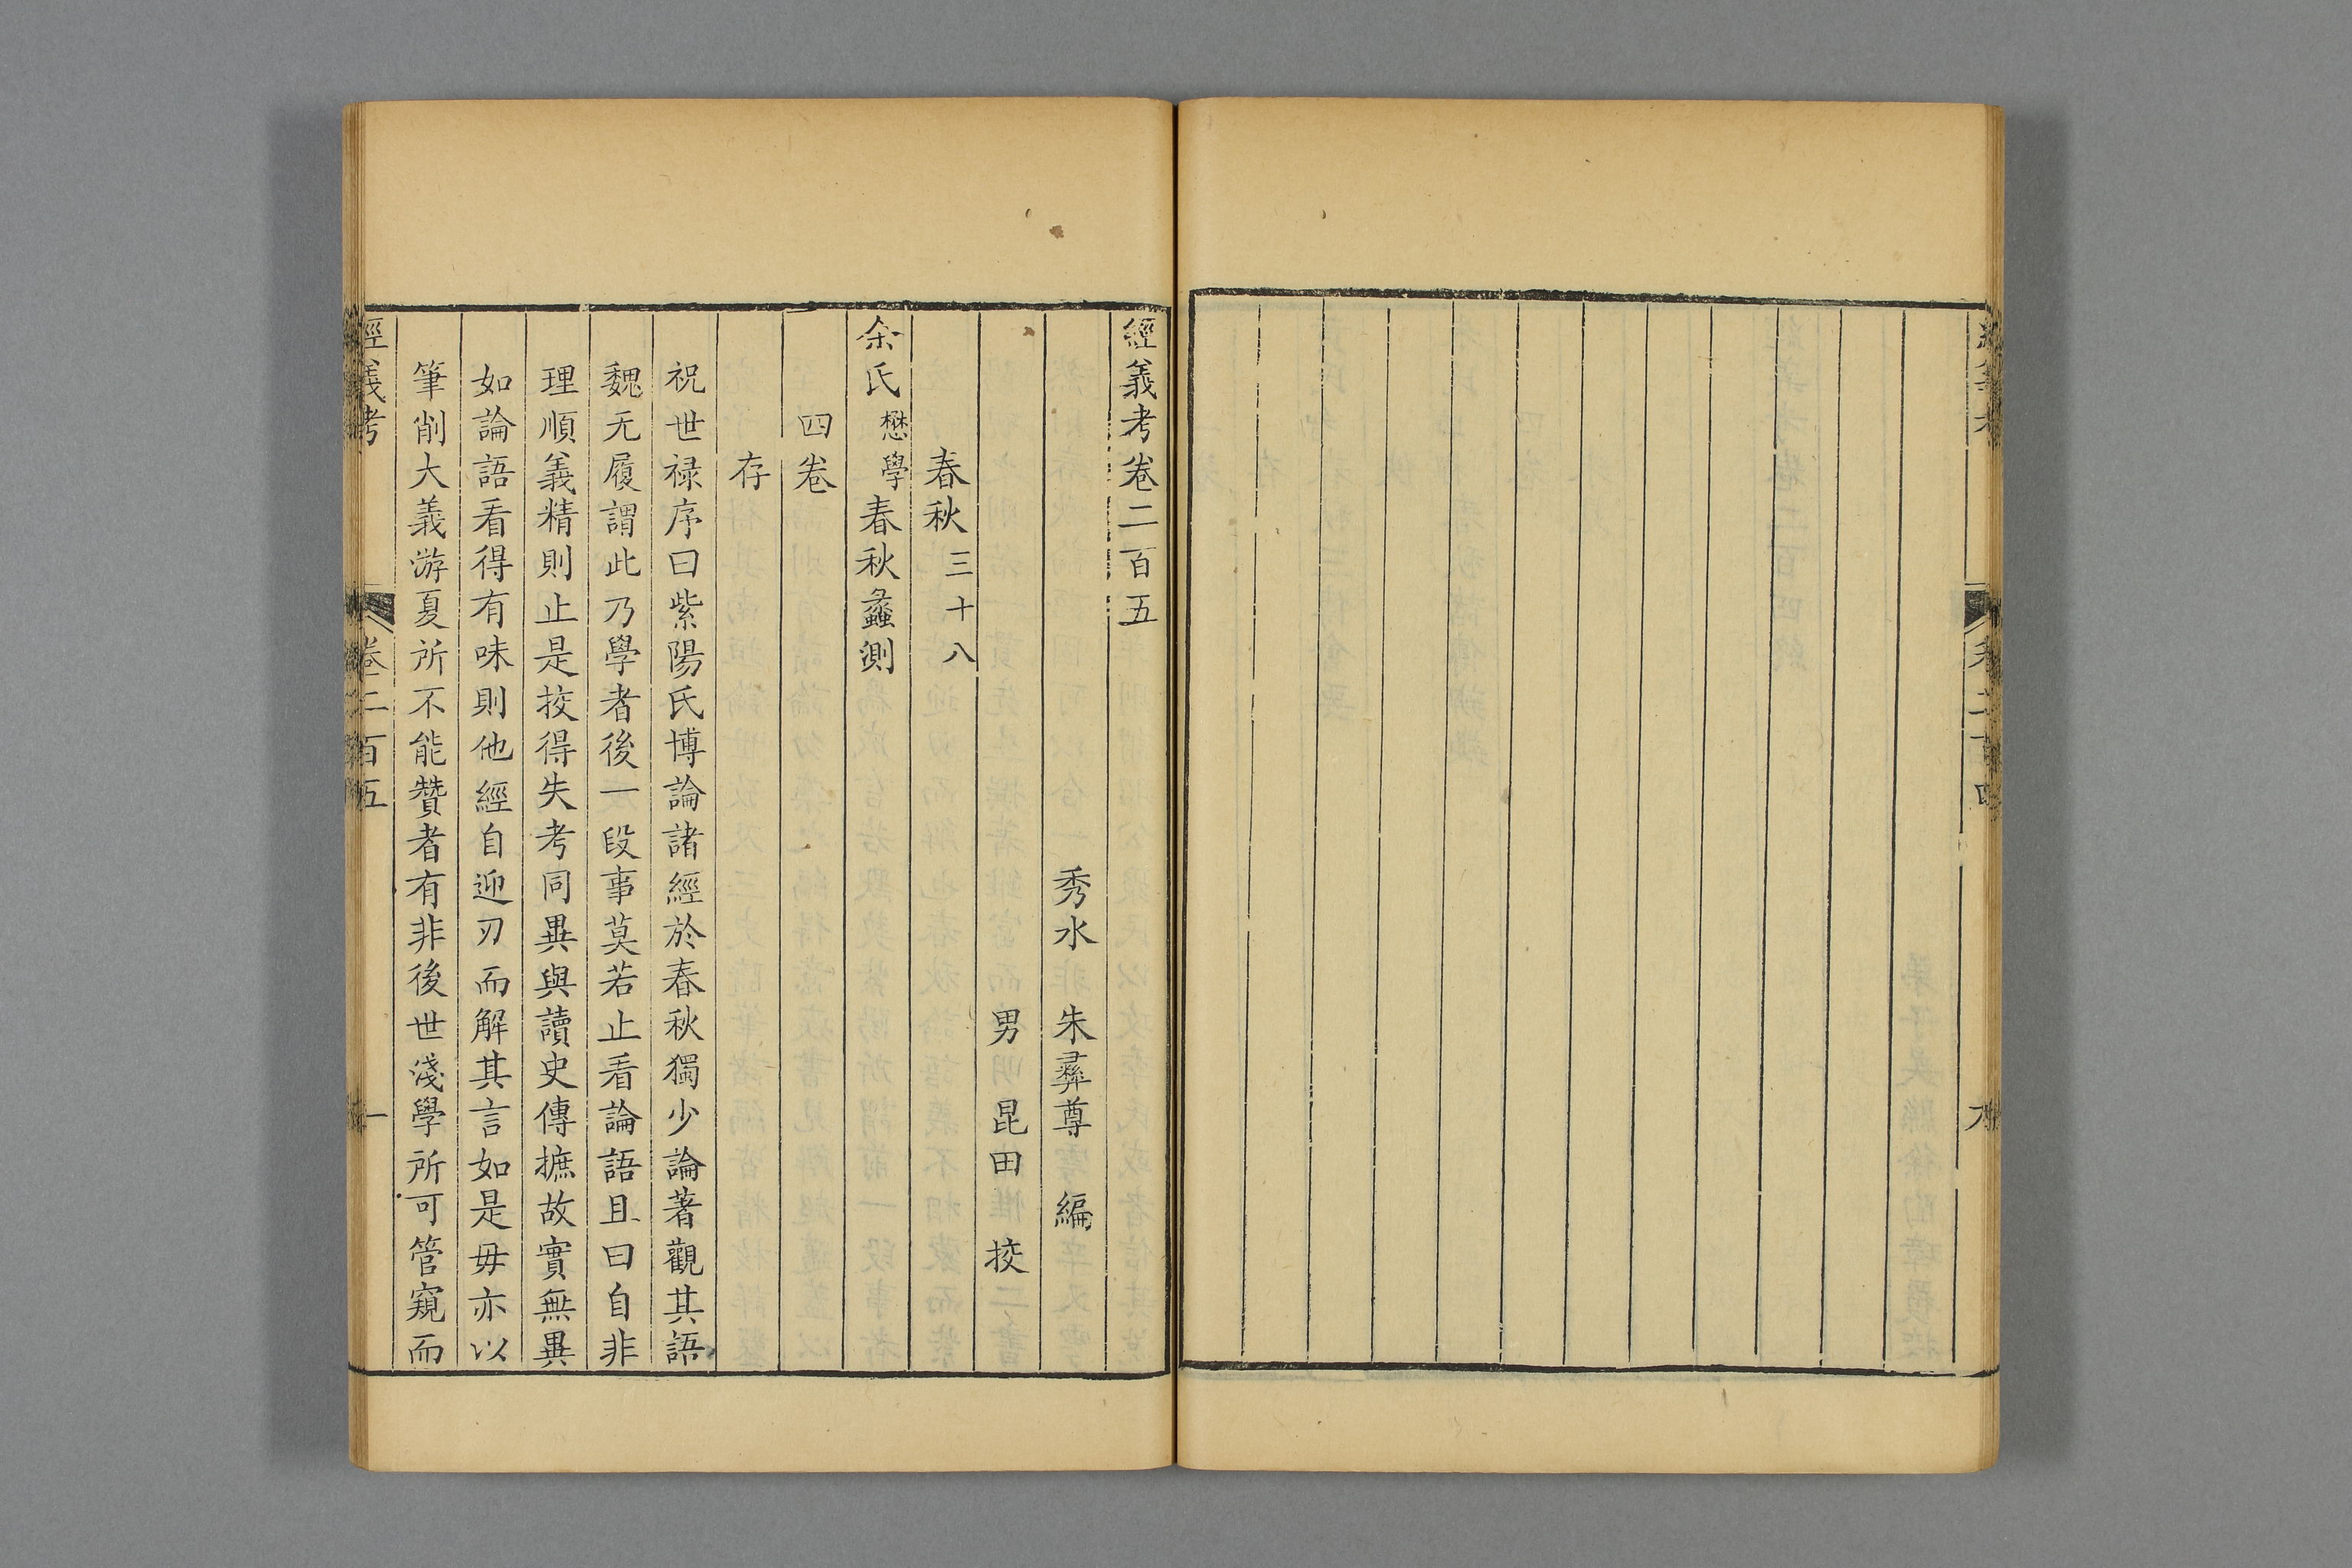 經義考卷二百五
秀水 朱彝尊 編
男 昆田 挍
春秋三十八
余氏懋學春秋蠡測
四卷
存
祝世禄序曰紫陽氏博論諸經於春秋獨少論著觀其語
魏无履謂此乃學者後一段事莫若止看論語且曰自非
理順義精則止是挍得失考同異與讀史傳摭故實無異
如論語看得有味則他經自迎刃而解其言如是毋亦以
筆削大義游夏所不能贊者有非後世淺學所可管窺而
經義考 卷二百五 一